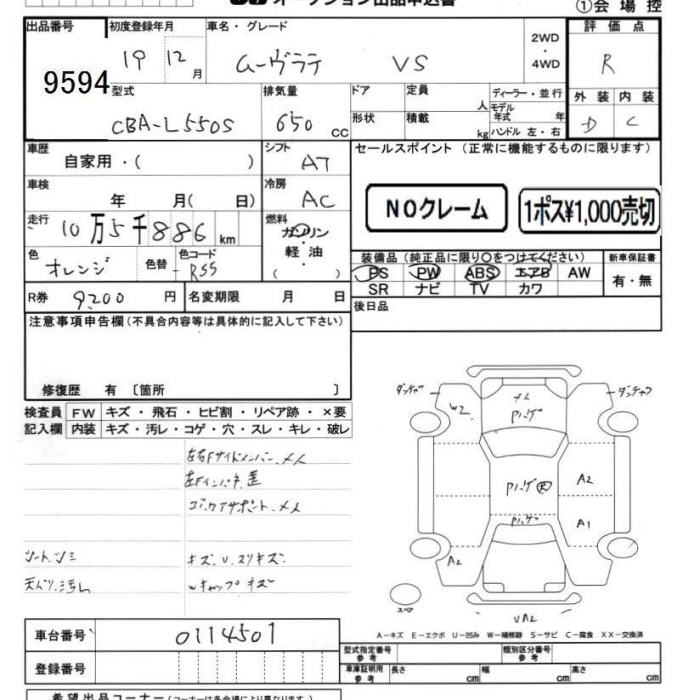 オークション出品申込書
①会場控
出品番号 初度登録年月 車名・グレード 2WD・4WD 評価点
9594 19 12月 ムーヴラテ VS R
型式 排気量 ドア 定員 人 ディーラー・並行 外装 内装
CBA-L550S 650 cc 形状 積載 kg モデル年式 年 ハンドル 左・右 D C
車歴 自家用・( ) シフト AT セールスポイント (正常に機能するものに限ります)
車検 年 月( 日) 冷房 AC
NOクレーム 1ポス¥1,000売切
走行 10万5千886km 燃料 ガソリン・軽油( )
色 オレンジ 色替 色コード R55
装備品(純正品に限り○をつけてください) 新車保証書
PS PW ABS エアB AW 有・無
SR ナビ TV カワ
R券 9200円 名変期限 月 日 後日品
注意事項申告欄(不具合内容等は具体的に記入して下さい)
修復歴 有〔箇所 〕
検査員 FW キズ・飛石・ヒビ割・リペア跡・×要
記入欄 内装 キズ・汚レ・コゲ・穴・スレ・キレ・破レ
左右Fサイドメンバー.メレ
左Fインパネ.歪
コアサポート.メレ
シート.シミ キズ.U.スリキズ
天バリ.汚レ Wキャップキズ
W2
A2
A1
A2
スペア
VA2
A-キズ E-エクボ U-凹み W-補修跡 S-サビ C-腐食 XX-交換済
車台番号 0114501
型式指定番号 参考 類別区分番号 参考
登録番号
車庫証明用 参考 長さ cm 幅 cm 高さ cm
希望出品コーナー(コーナーは各会場により異なります)